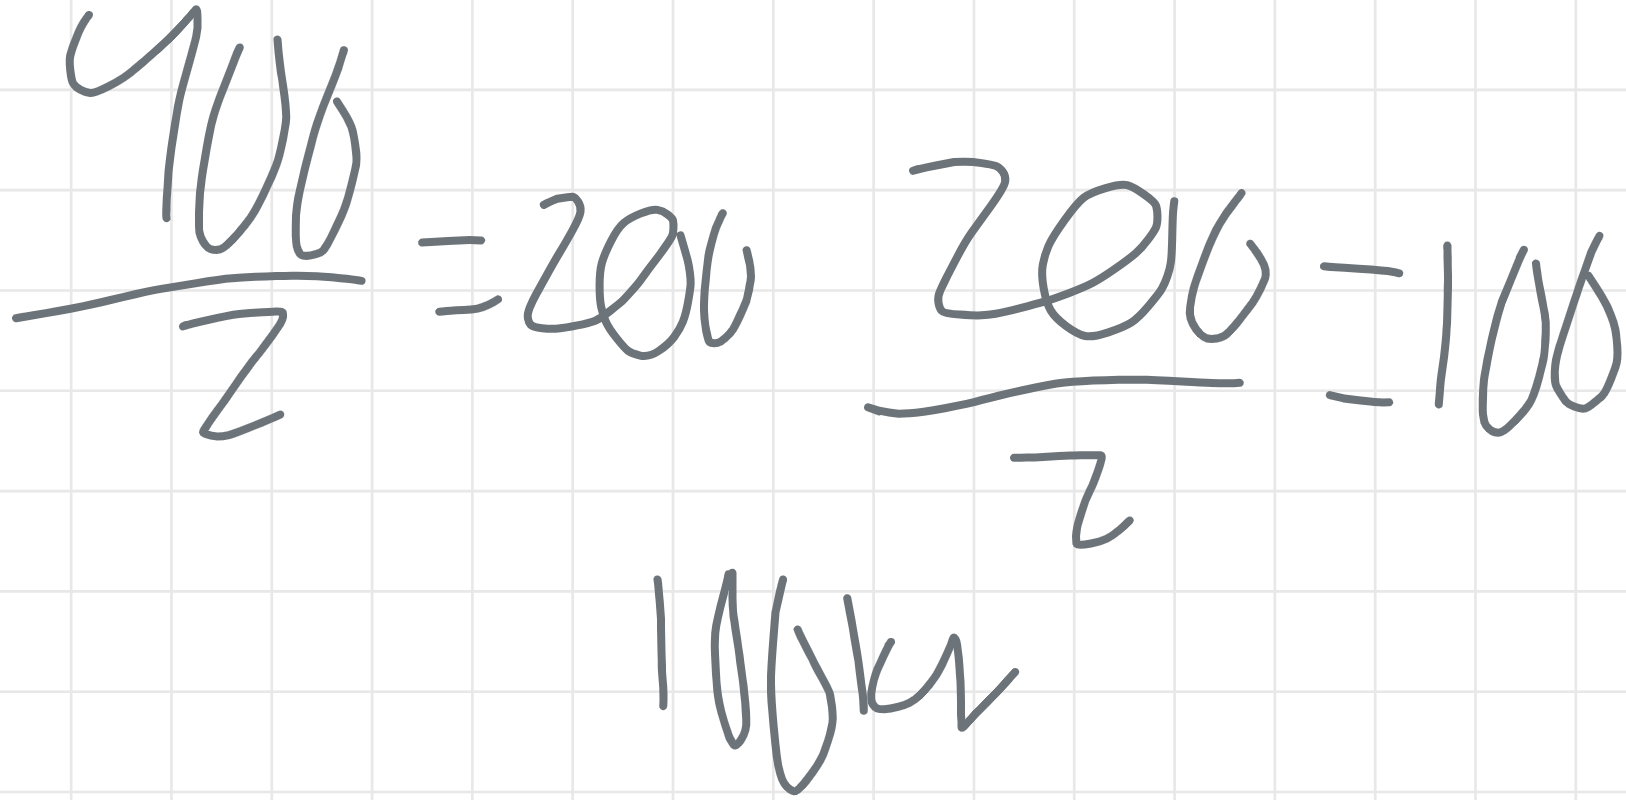 400/2 = 200 200/2 = 100
100 km